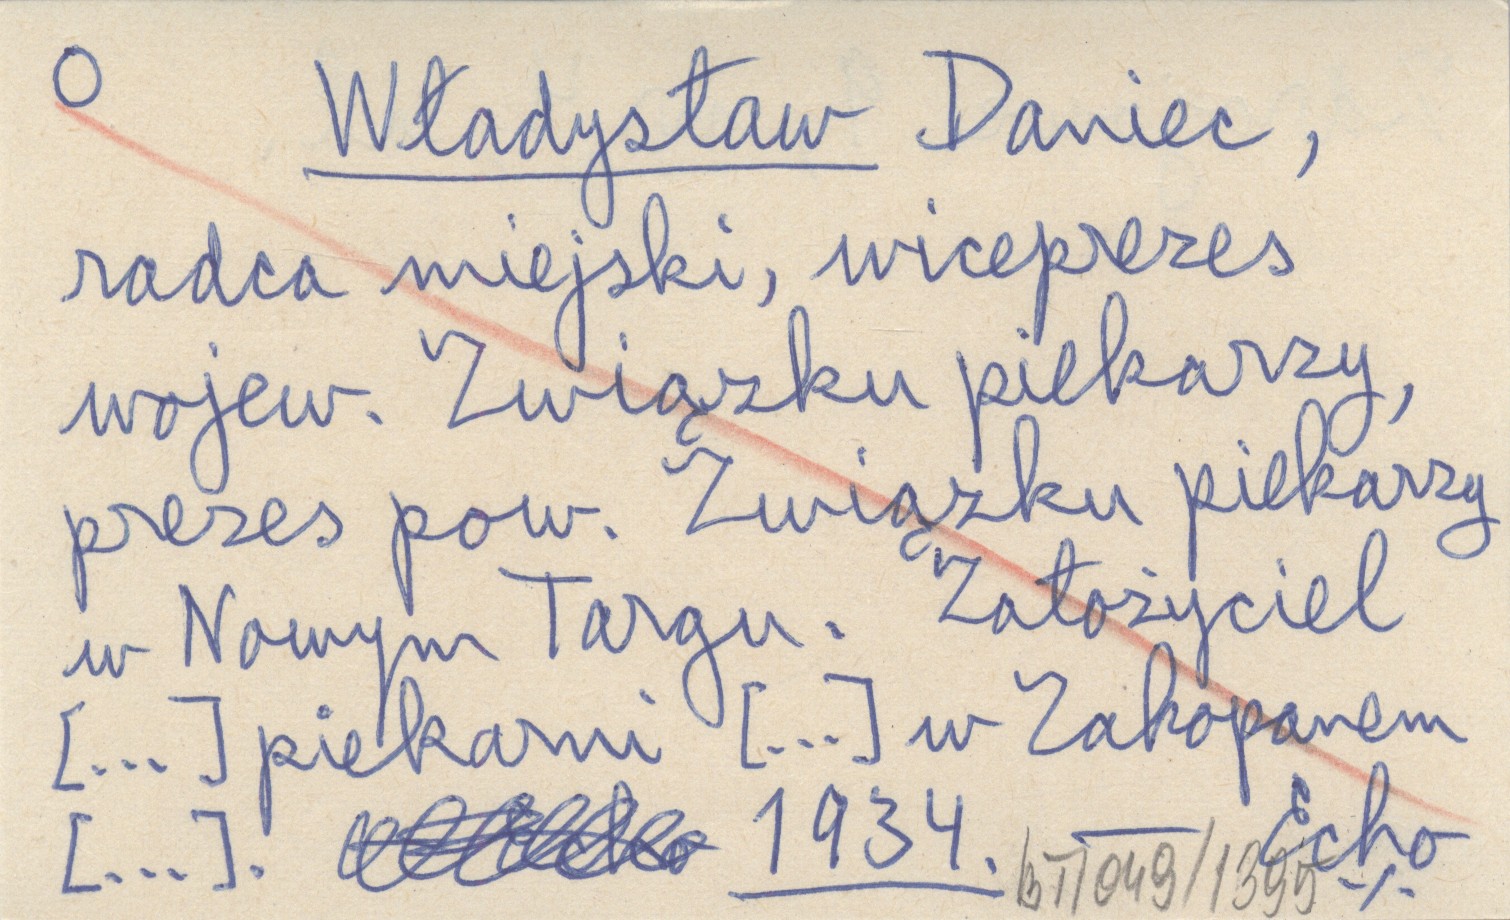 O Władysław Daniec,
radca miejski, wiceprezes
wojew. Związku piekarzy,
prezes pow. Związku piekarzy
w Nowym Targu. Założyciel
[...] piekarni [...] w Zakopanem
[...]. 1934. — Echo
BT/049/1395 -/.